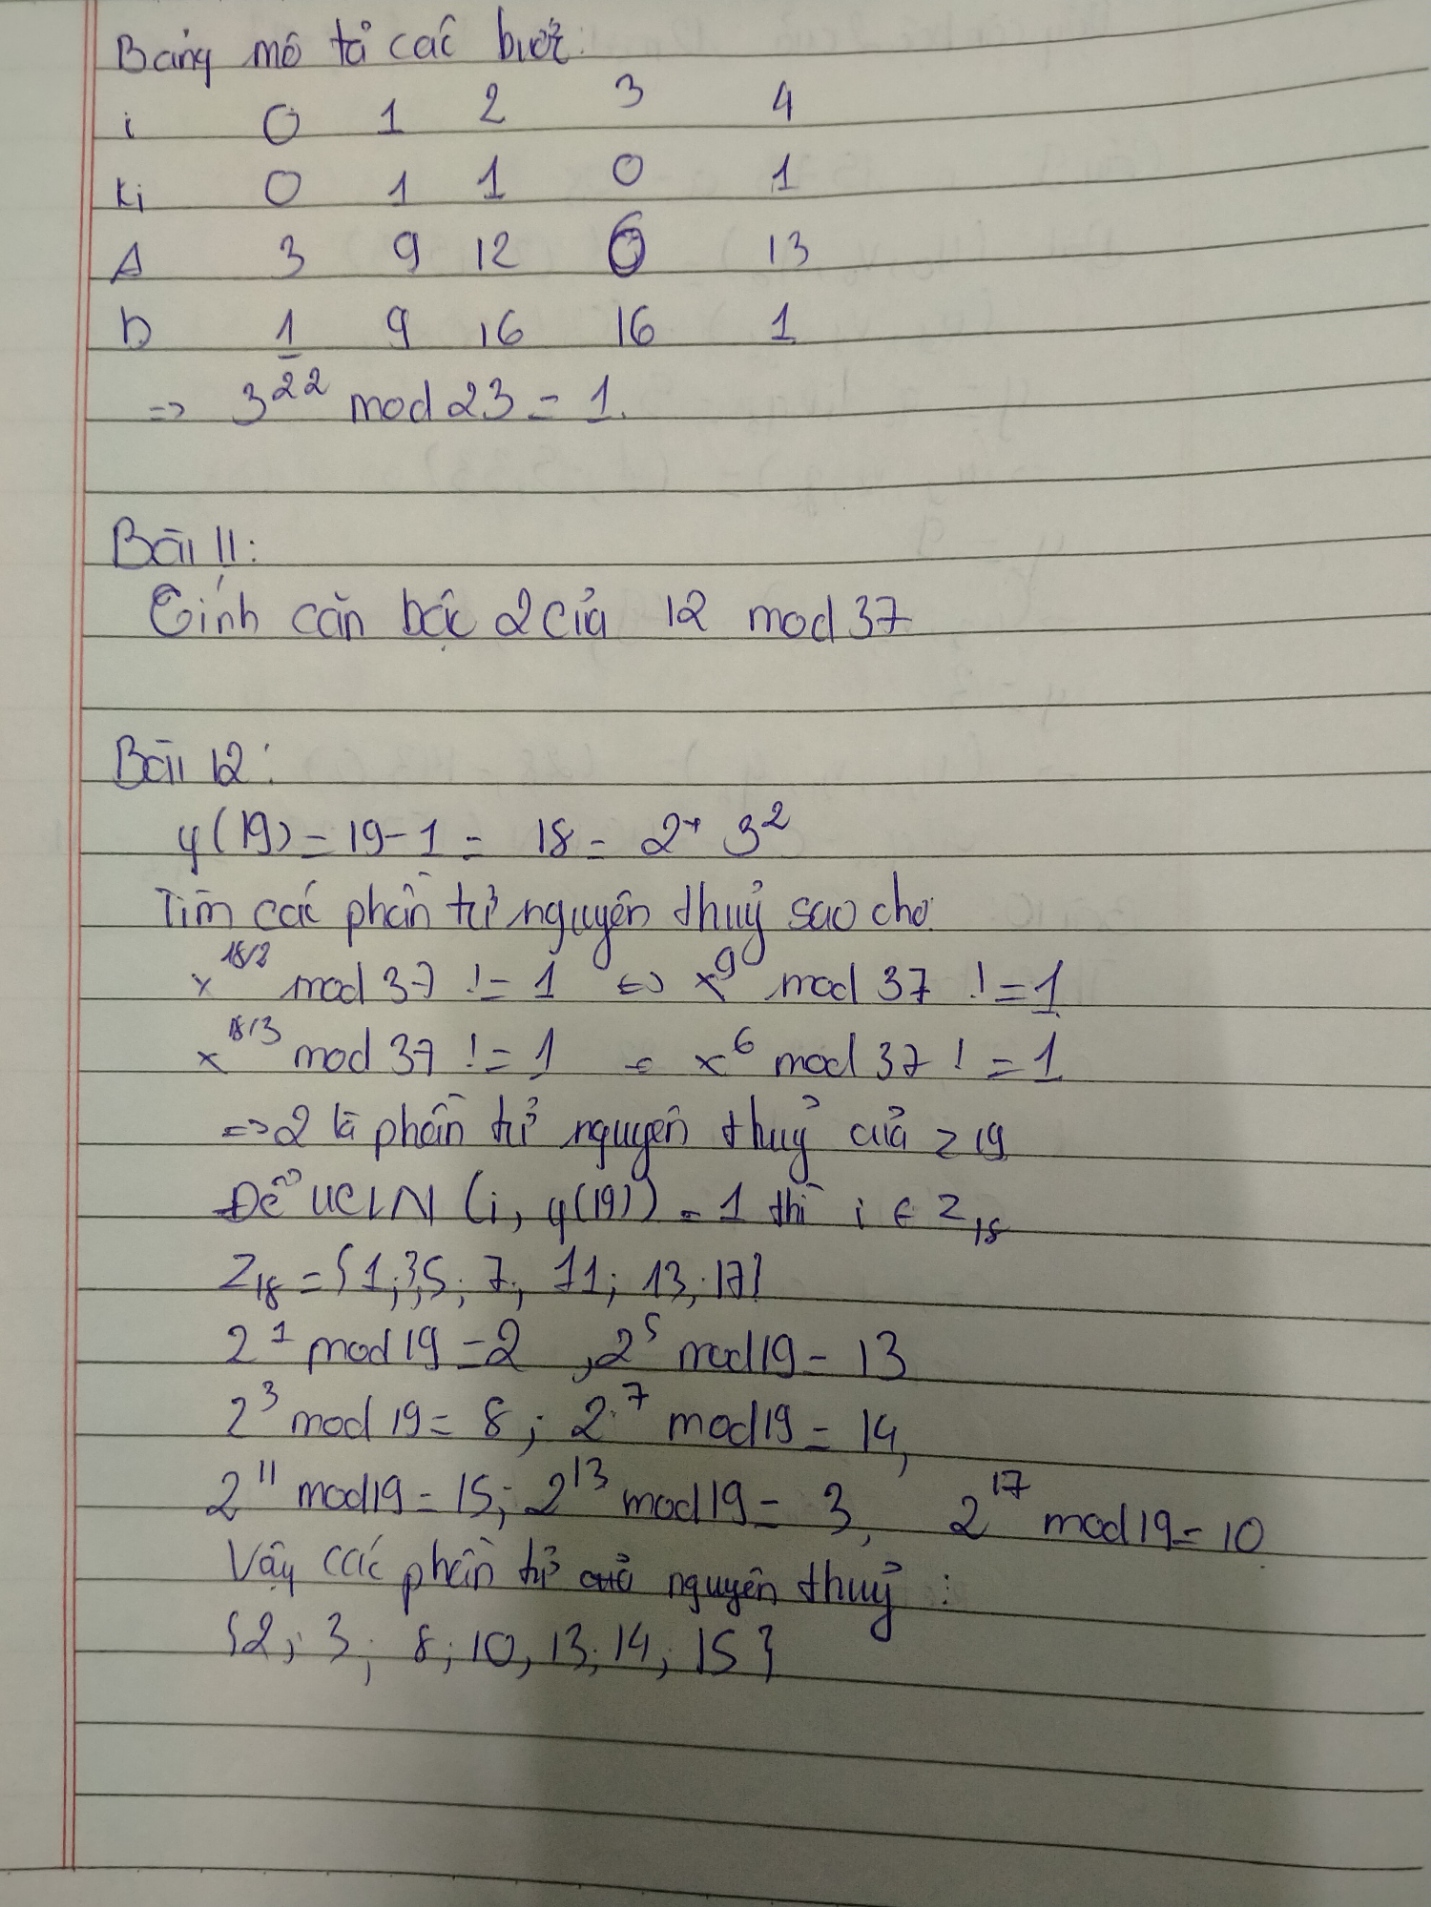 Bảng mô tả các bước:
i 0 1 2 3 4
ki 0 1 1 0 1
A 3 9 12 6 13
b 1 9 16 16 1
=> 3^22 mod 23 = 1.
Bài 11:
Tính căn bậc 2 của 12 mod 37
Bài 12:
φ(19) = 19 - 1 = 18 = 2 * 3^2
Tìm các phần tử nguyên thuỷ sao cho:
x^18/2 mod 37 != 1 <=> x^9 mod 37 != 1
x^18/3 mod 37 != 1 = x^6 mod 37 != 1
=> 2 là phần tử nguyên thuỷ của Z19
Để UCLN (i, φ(19)) = 1 thì i ∈ Z18
Z18 = {1; 3; 5; 7; 11; 13; 17}
2^1 mod 19 = 2, 2^5 mod 19 = 13
2^3 mod 19 = 8; 2^7 mod 19 = 14,
2^11 mod 19 = 15; 2^13 mod 19 = 3, 2^17 mod 19 = 10
Vậy các phần tử nguyên thuỷ:
{2; 3; 8; 10, 13; 14; 15}